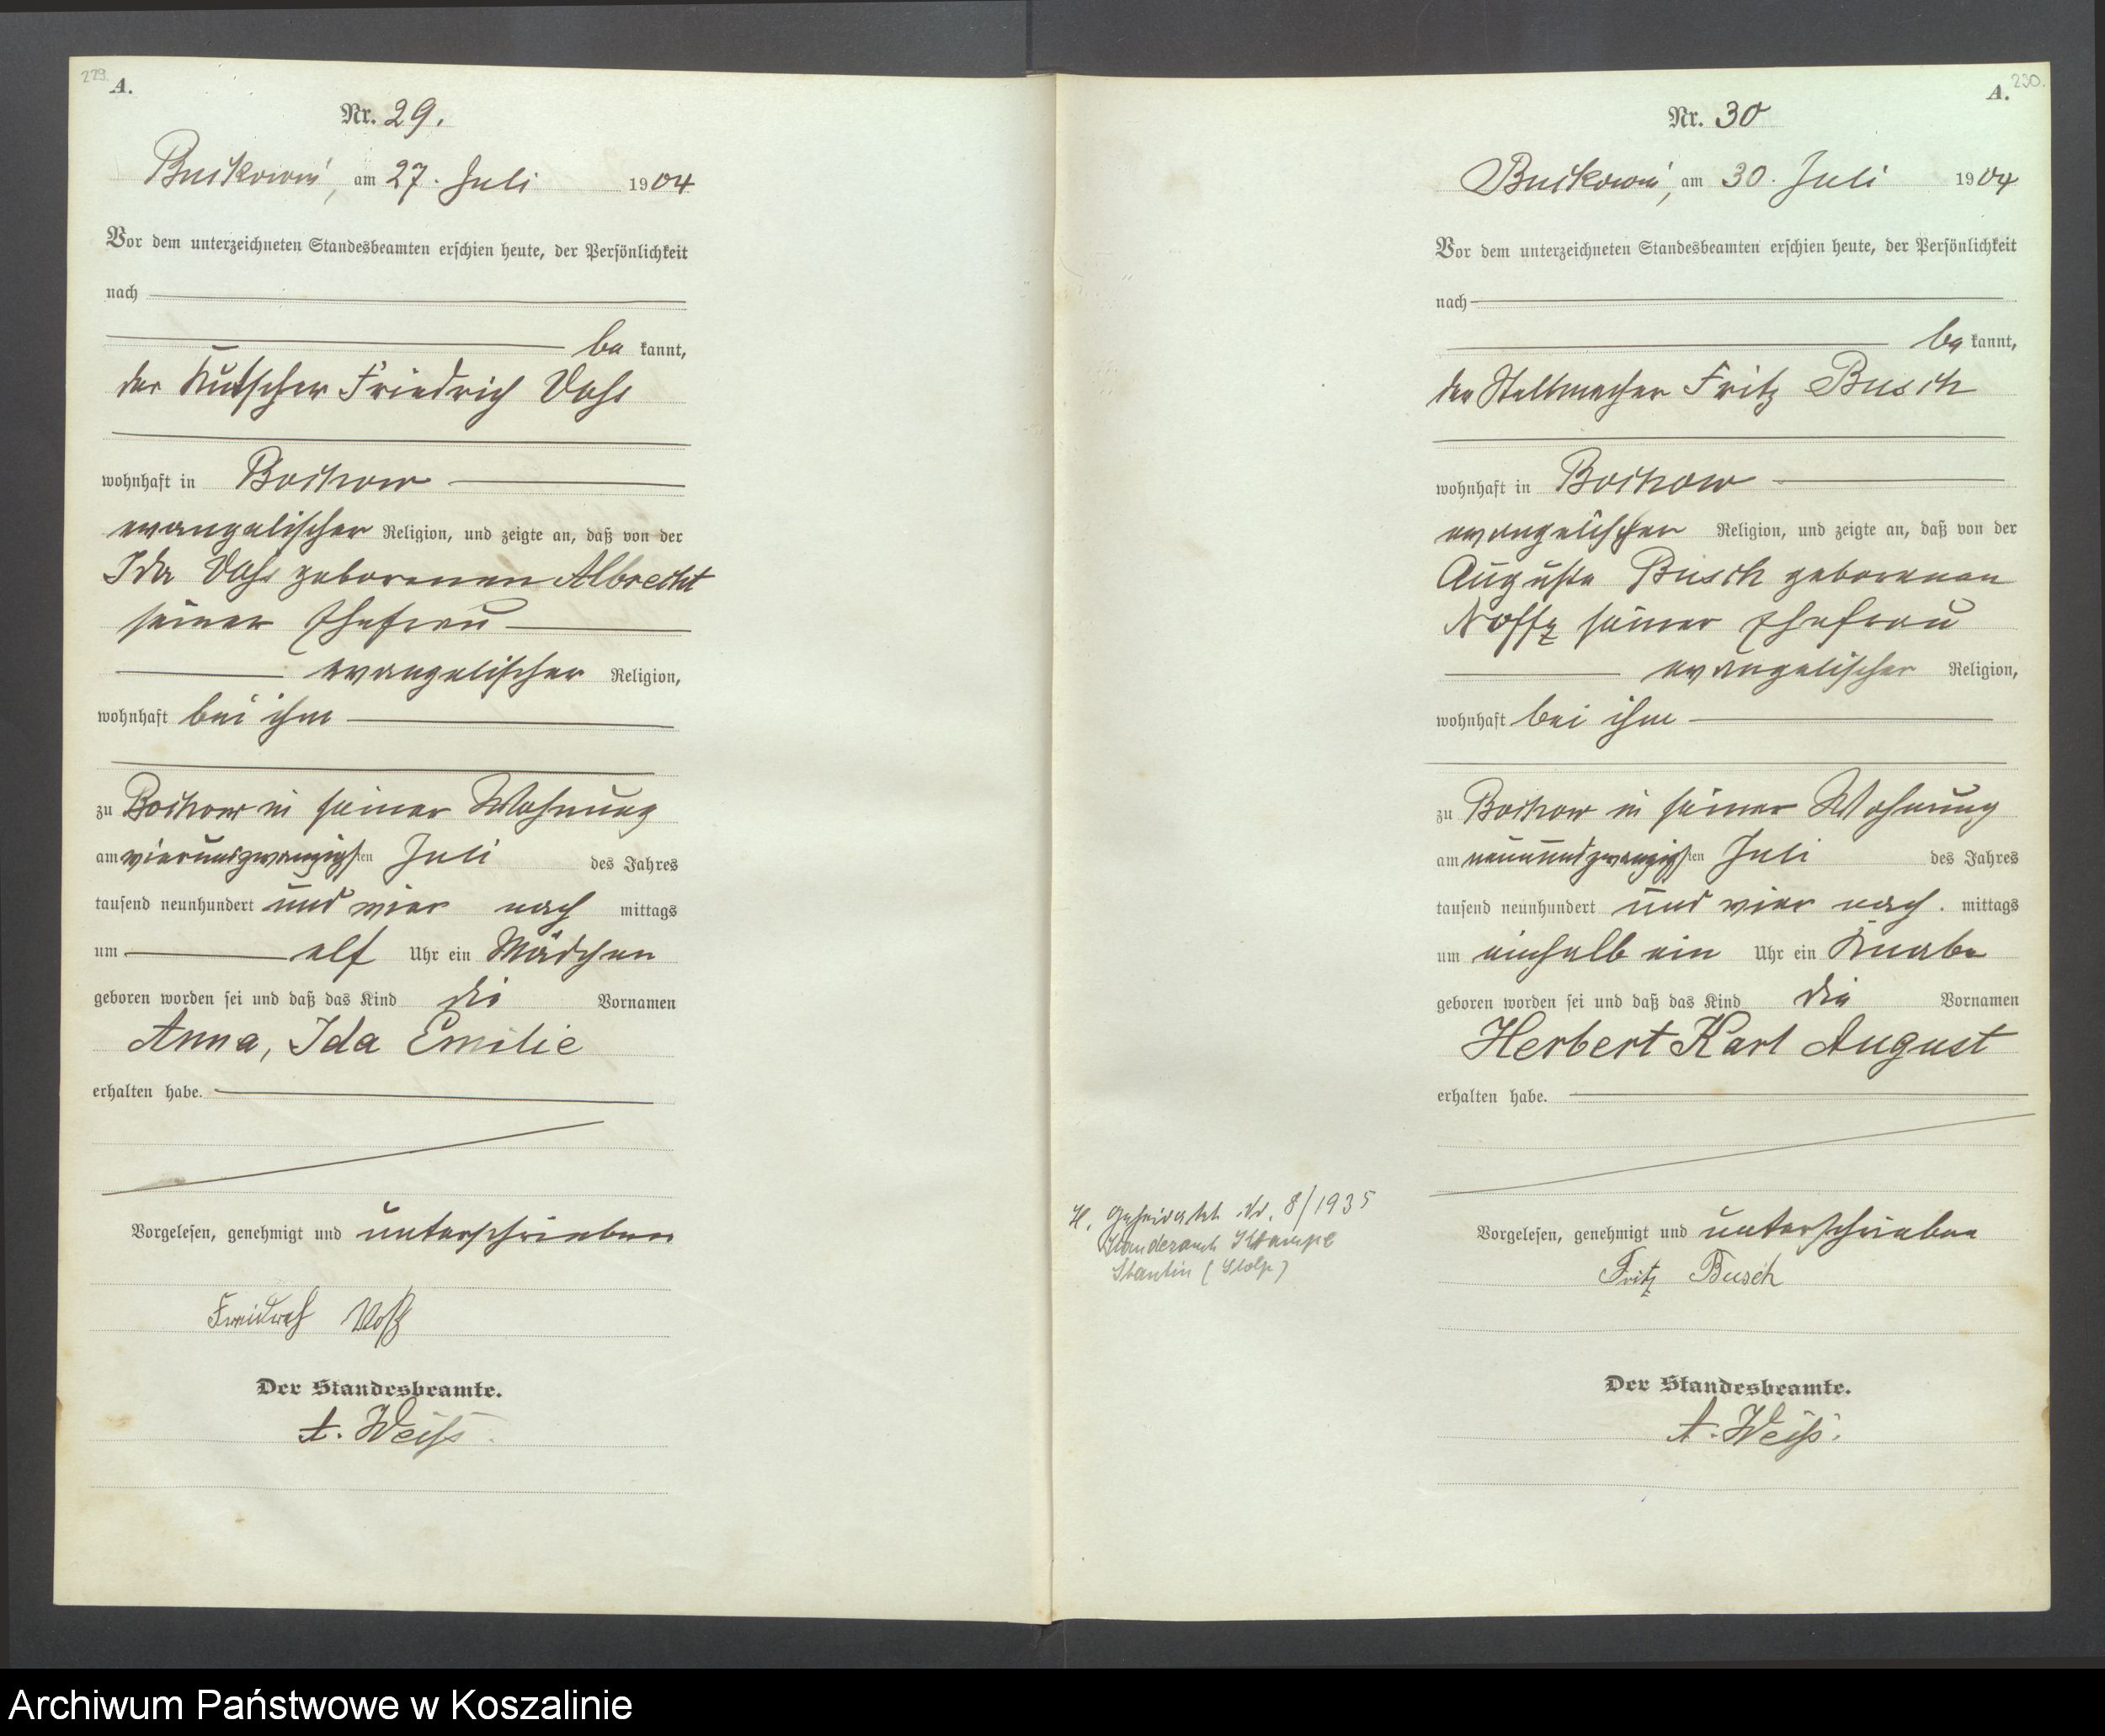 229.
A.
Nr. 29.
Buckowin, am 27. Juli 1904
Vor dem unterzeichneten Standesbeamten erschien heute, der Persönlichkeit
nach
be kannt,
der Kutscher Friedrich Vohs
wohnhaft in Bochow
evangelischer Religion, und zeigte an, daß von der
Ida Vohs geborenen Albrecht
seiner Ehefrau
evangelischer Religion,
wohnhaft bei ihm
zu Bochow in seiner Wohnung
am vierundzwanzigsten Juli des Jahres
tausend neunhundert und vier nach mittags
um elf Uhr ein Mädchen
geboren worden sei und daß das Kind die Vornamen
Anna, Ida Emilie
erhalten habe.
Vorgelesen, genehmigt und unterschrieben
Voß
Der Standesbeamte.
A. Weiss.
230.
A.
Nr. 30
Buckowin, am 30. Juli 1904
Vor dem unterzeichneten Standesbeamten erschien heute, der Persönlichkeit
nach
be kannt,
der Stellmacher Fritz Busch
wohnhaft in Bochow
evangelischer Religion, und zeigte an, daß von der
Auguste Busch geborenen
Noffz seiner Ehefrau
evangelischer Religion,
wohnhaft bei ihm
zu Bochow in seiner Wohnung
am neunundzwanzigsten Juli des Jahres
tausend neunhundert und vier nach. mittags
um einhalb ein Uhr ein Knabe
geboren worden sei und daß das Kind die Vornamen
Herbert Karl August
erhalten habe.
H. Geheiratet Nr. 8/1935
Standesamt
Stantin (Stolp)
Vorgelesen, genehmigt und unterschrieben
Fritz Busch
Der Standesbeamte.
A. Weiss.
Archiwum Państwowe w Koszalinie